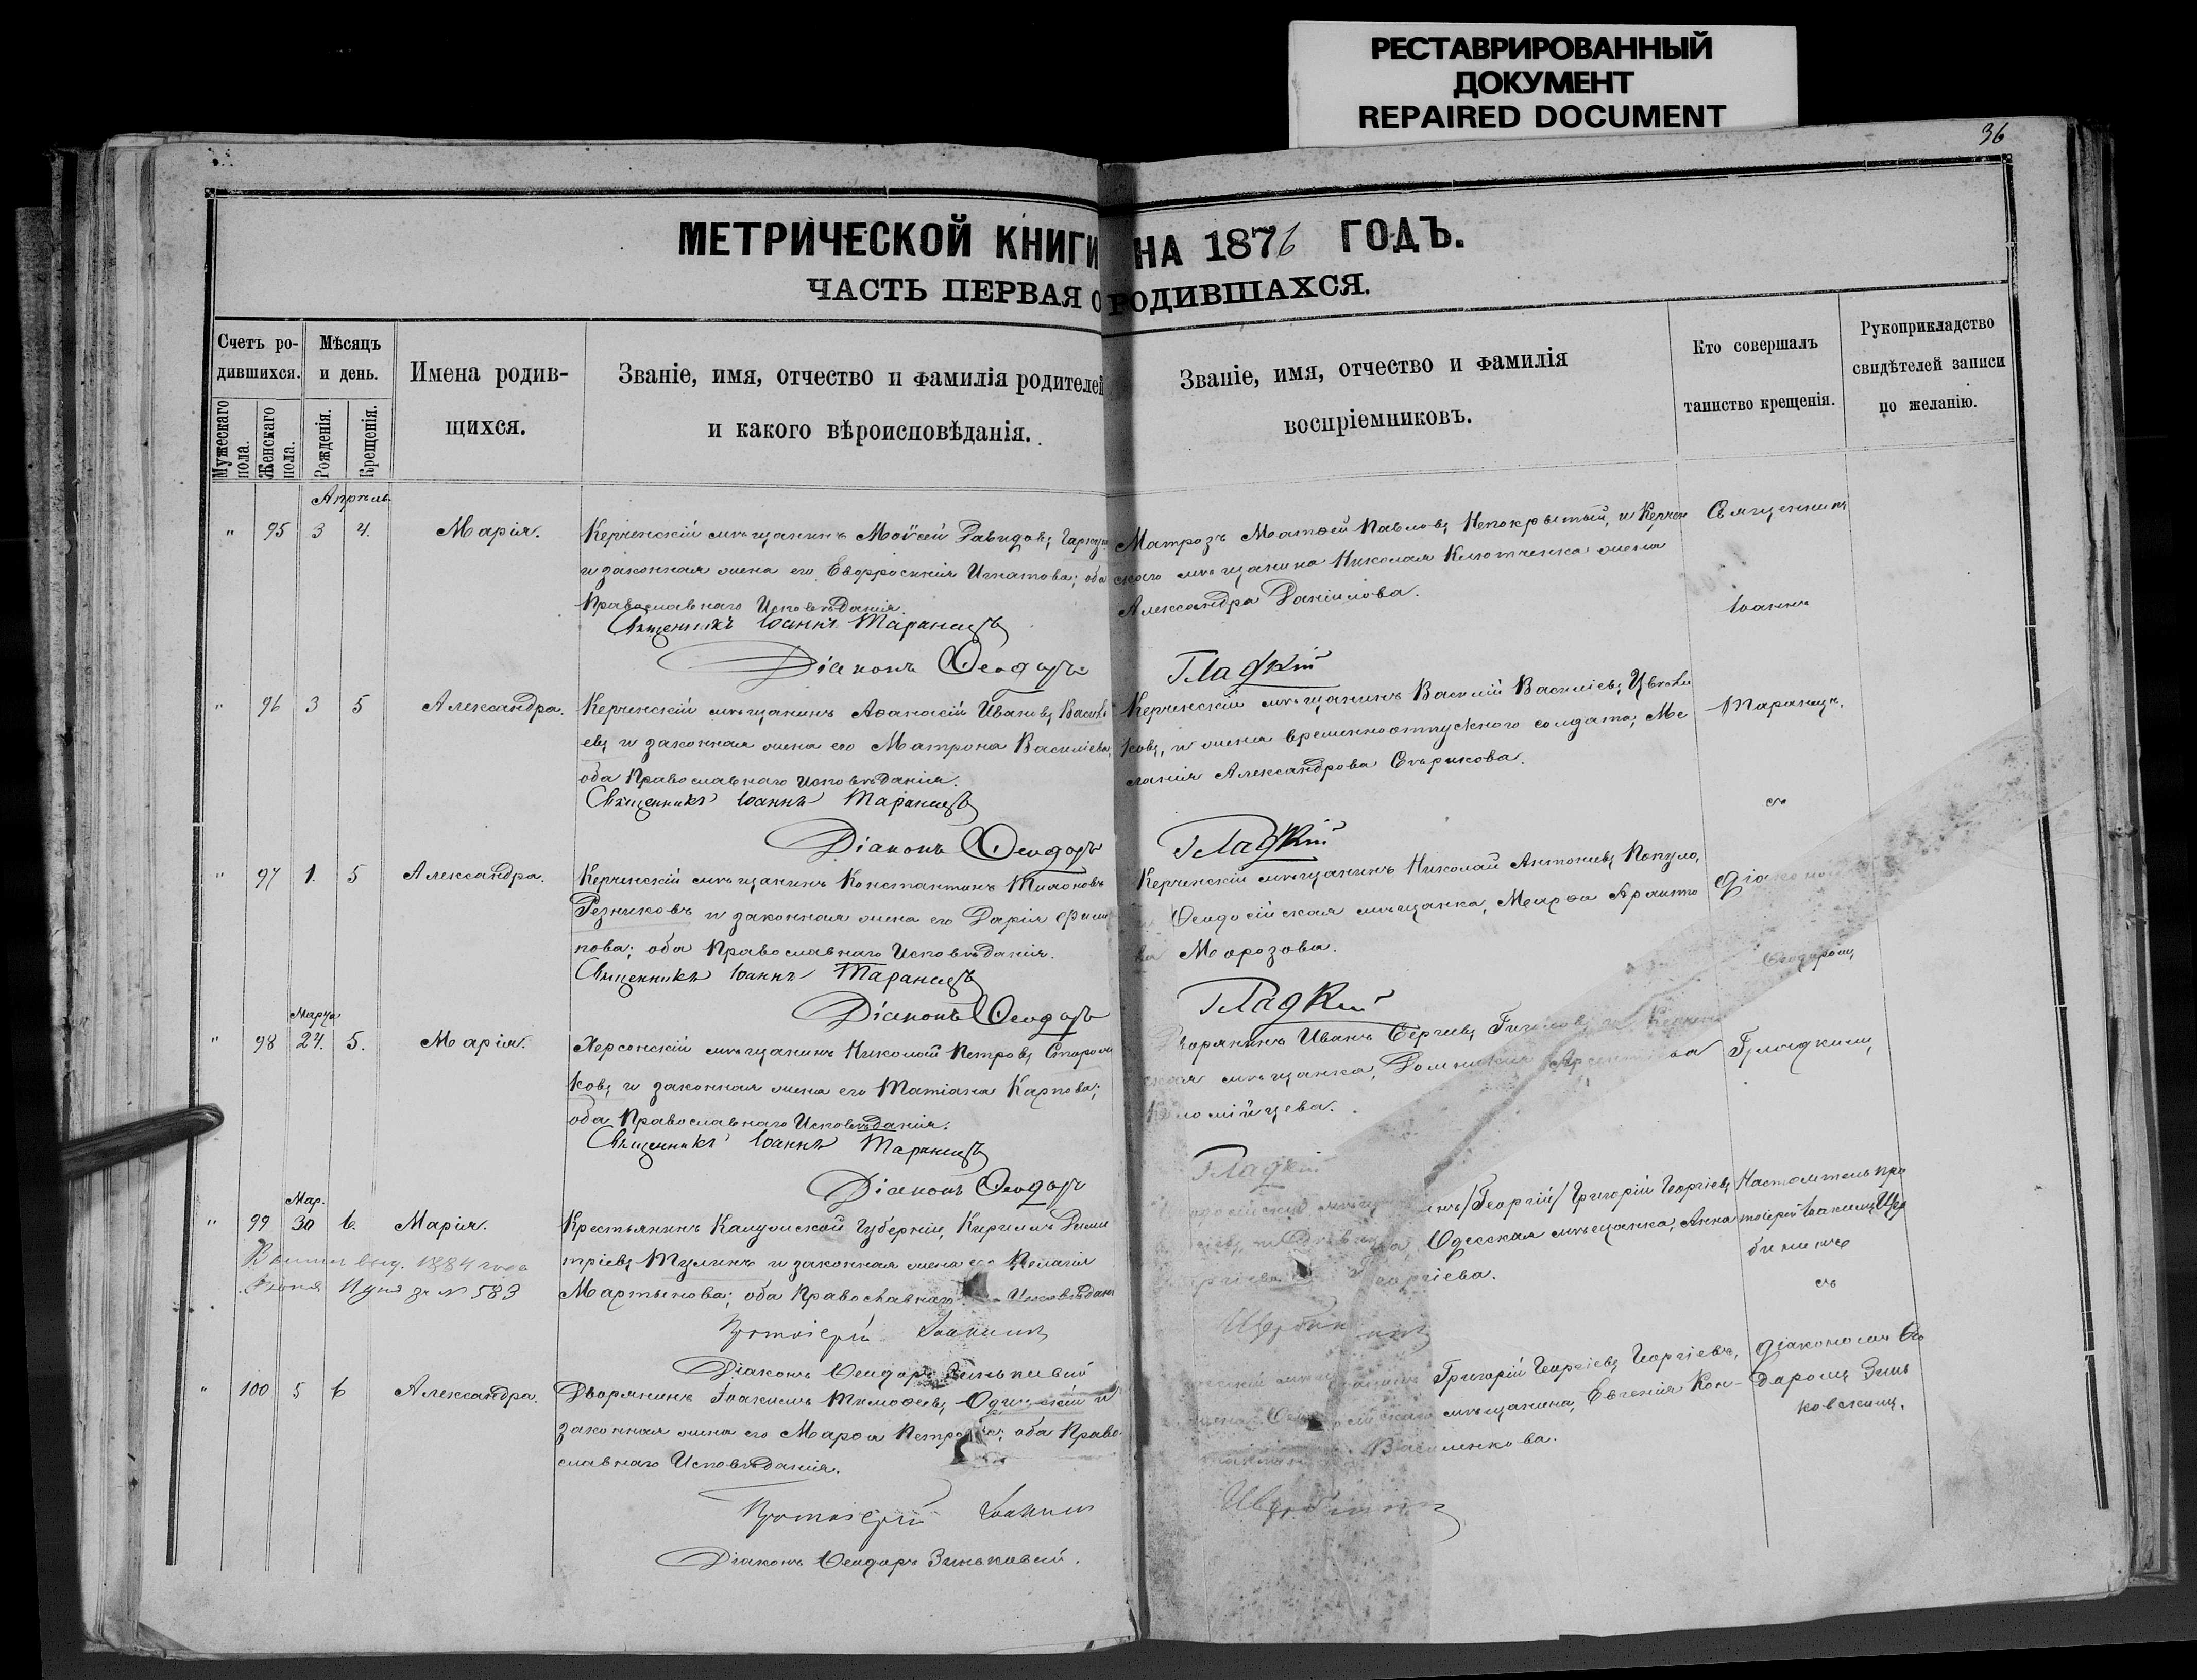 РЕСТАВРИРОВАННЫЙ
ДОКУМЕНТ
REPAIRED DOCUMENT
36
МЕТРИЧЕСКОЙ КНИГИ НА 1876 ГОДЪ.
ЧАСТЬ ПЕРВАЯ О РОДИВШАХСЯ.
Счетъ ро-
дившихся.
Мужескаго пола.
Женскаго пола.
Мѣсяцъ
и день.
Рожденія.
Крещенія.
Имена родив-
щихся.
Званіе, имя, отчество и фамилія родителей
и какого вѣроисповѣданія.
Званіе, имя, отчество и фамилія
воспріемниковъ.
Кто совершалъ
таинство крещенія.
Рукоприкладство
свидѣтелей записи
по желанію.
Апрѣль
" 95 3 4. Марія.
Керченскій мѣщанинъ Мойсей Давидовъ
и законная жена его Евфросинія Игнатова; оба
Православнаго Исповѣданія.
Священникъ Іоаннъ Таранецъ
Діаконъ Ѳеодоръ Гладкій
Матрозъ Матѳей Павловъ Непокрытый, и Керчен
скаго мѣщанина Николая Клютченка жена
Александра Даніилова.
Священникъ
Іоаннъ
" 96 3 5 Александра.
Керченскій мѣщанинъ Аѳанасій Ивановъ Василь
евъ и законная жена его Матрона Василіева,
оба Православнаго Исповѣданія.
Священникъ Іоаннъ Таранецъ
Діаконъ Ѳеодоръ Гладкій
Керченскій мѣщанинъ Василій Василіевъ Цвѣт
ковъ, и жена временноотпускного солдата, Ме
ланія Александрова
Таранецъ.
съ
" 97 1. 5 Александра.
Керченскій мѣщанинъ Константинъ
Резниковъ и законная жена его Дарія Фили
пова; оба Православнаго Исповѣданія.
Священникъ Іоаннъ Таранецъ
Діаконъ Ѳеодоръ Гладкій
Керченскій мѣщанинъ Николай Антоніевъ
Ѳеодосійская мѣщанка, Марѳа
Морозова.
Діакономъ
Ѳеодоромъ
Марта
" 98 24. 5. Марія.
Херсонскій мѣщанинъ Николай Петровъ
ковъ и законная жена его Татіана Карпова;
оба Православнаго Исповѣданія.
Священникъ Іоаннъ Таранецъ
Діаконъ Ѳеодоръ Гладкій
Дворянинъ Иванъ Сергіевъ
мѣщанка,
Коломійцева.
Гладкимъ,
Мар.
" 99 30 6. Марія.
1884 года
Іюня № 583
Крестьянинъ Калужской Губерніи, Кириллъ Дими
тріевъ Тулинъ и законная жена его Пелагія
Мартынова; оба Православнаго Исповѣдан
Протоіерей Іоакимъ
Діаконъ Ѳеодоръ Зиньковскій
/Георгій/ Григорій Георгіевъ
Одесская мѣщанка, Анна
Георгіева.
Настоятель про
тоіерей Іоакимъ Щер
бининъ
съ
" 100 5 6 Александра.
Дворянинъ Іоакимъ Тимоѳеевъ
законная жена его Марѳа Петрова; оба Право
славнаго Исповѣданія.
Протоіерей Іоакимъ
Діаконъ Ѳеодоръ Зиньковскій.
Григорій Георгіевъ Георгіевъ,
мѣщанина, Евгенія Кон-
Василенкова.
діакономъ Ѳео
доромъ Зинь
ковскимъ.